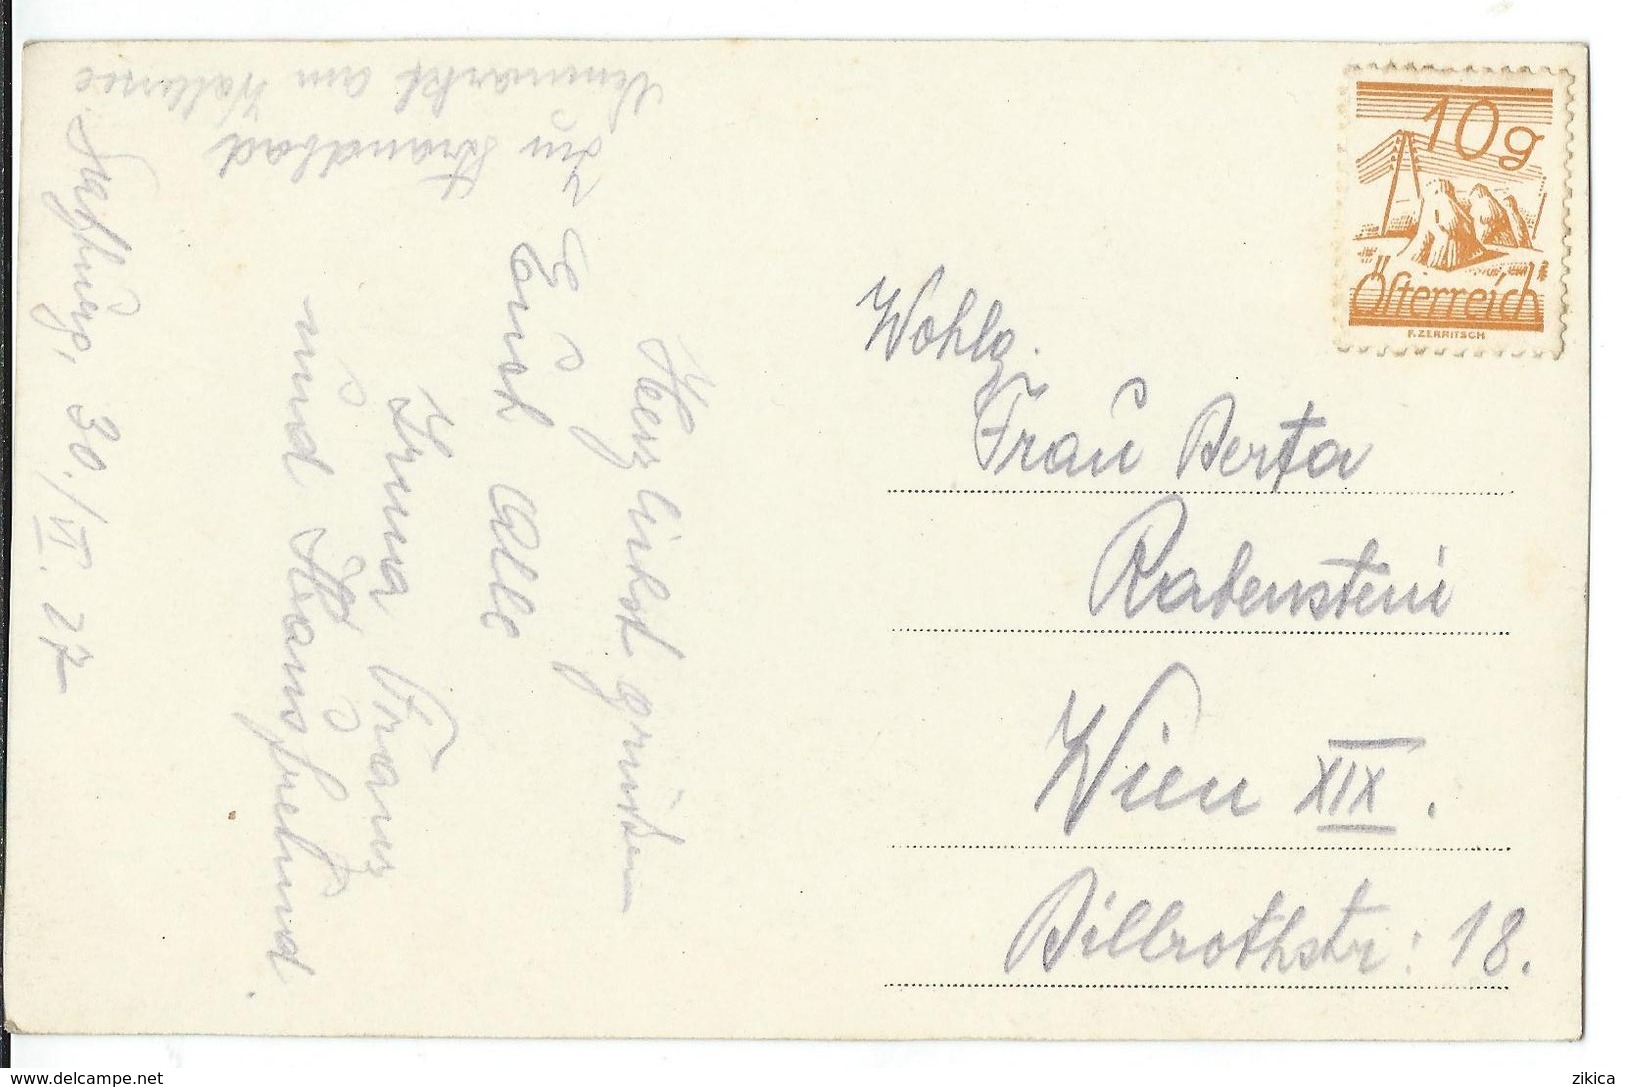 10g
Österreich
F. ZERRITSCH
Wohlg.
Frau Berta
Rabenstein
Wien XIX.
Billrothstr: 18.
Salzburg, 30./VI. 27
Herzlichst grüssen
Euch Alle
Irma Franz
und
Im Strandbad
Neumarkt am Wallersee
www.delcampe.net
zikica